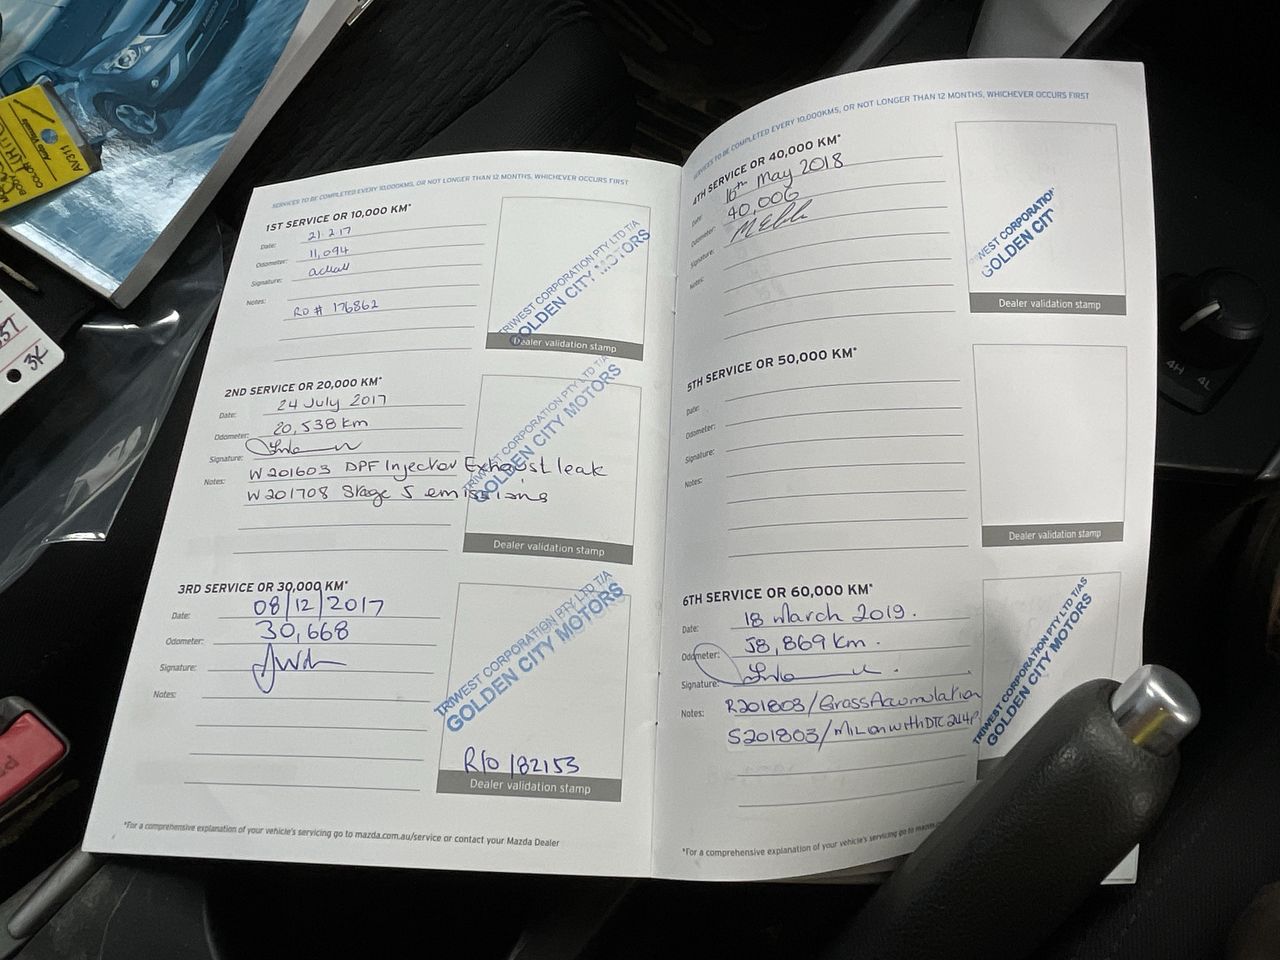 SERVICES TO BE COMPLETED EVERY 10,000KMS, OR NOT LONGER THAN 12 MONTHS, WHICHEVER OCCURS FIRST
1ST SERVICE OR 10,000 KM*
Date: 21.2.17
Odometer: 11,094
Signature:
Notes:
RO # 176862
TRIWEST CORPORATION PTY LTD T/A
GOLDEN CITY MOTORS
Dealer validation stamp
2ND SERVICE OR 20,000 KM*
Date: 24 July 2017
Odometer: 20,538 km
Signature:
Notes: W201603 DPF Injector Exhaust leak
W201708 Stage 5 emissions
TRIWEST CORPORATION PTY LTD T/A
GOLDEN CITY MOTORS
Dealer validation stamp
3RD SERVICE OR 30,000 KM*
Date: 08/12/2017
Odometer: 30,668
Signature:
Notes:
TRIWEST CORPORATION PTY LTD T/A
GOLDEN CITY MOTORS
R/O 182153
Dealer validation stamp
*For a comprehensive explanation of your vehicle's servicing go to mazda.com.au/service or contact your Mazda Dealer
SERVICES TO BE COMPLETED EVERY 10,000KMS, OR NOT LONGER THAN 12 MONTHS, WHICHEVER OCCURS FIRST
4TH SERVICE OR 40,000 KM*
Date: 16th May 2018
Odometer: 40,006
Signature:
Notes:
WEST CORPORATION
GOLDEN CIT
Dealer validation stamp
5TH SERVICE OR 50,000 KM*
Date:
Odometer:
Signature:
Notes:
Dealer validation stamp
6TH SERVICE OR 60,000 KM*
Date: 18 March 2019.
Odometer: 58,869 km.
Signature:
Notes: R201803/GrassAccumulation
S201803/MIL on with DTC 244
TRIWEST CORPORATION PTY LTD T/AS
GOLDEN CITY MOTORS
*For a comprehensive explanation of your vehicle's servicing go to
AV311
3K
4H 4L